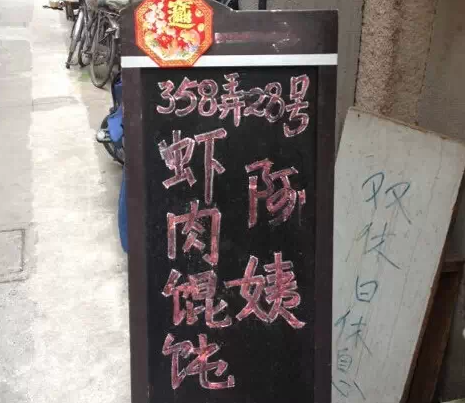 358弄28号
虾肉馄饨
阿姨
双休日休息